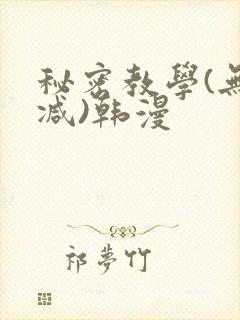 秘密教學(無
減)韩漫
祁夢竹